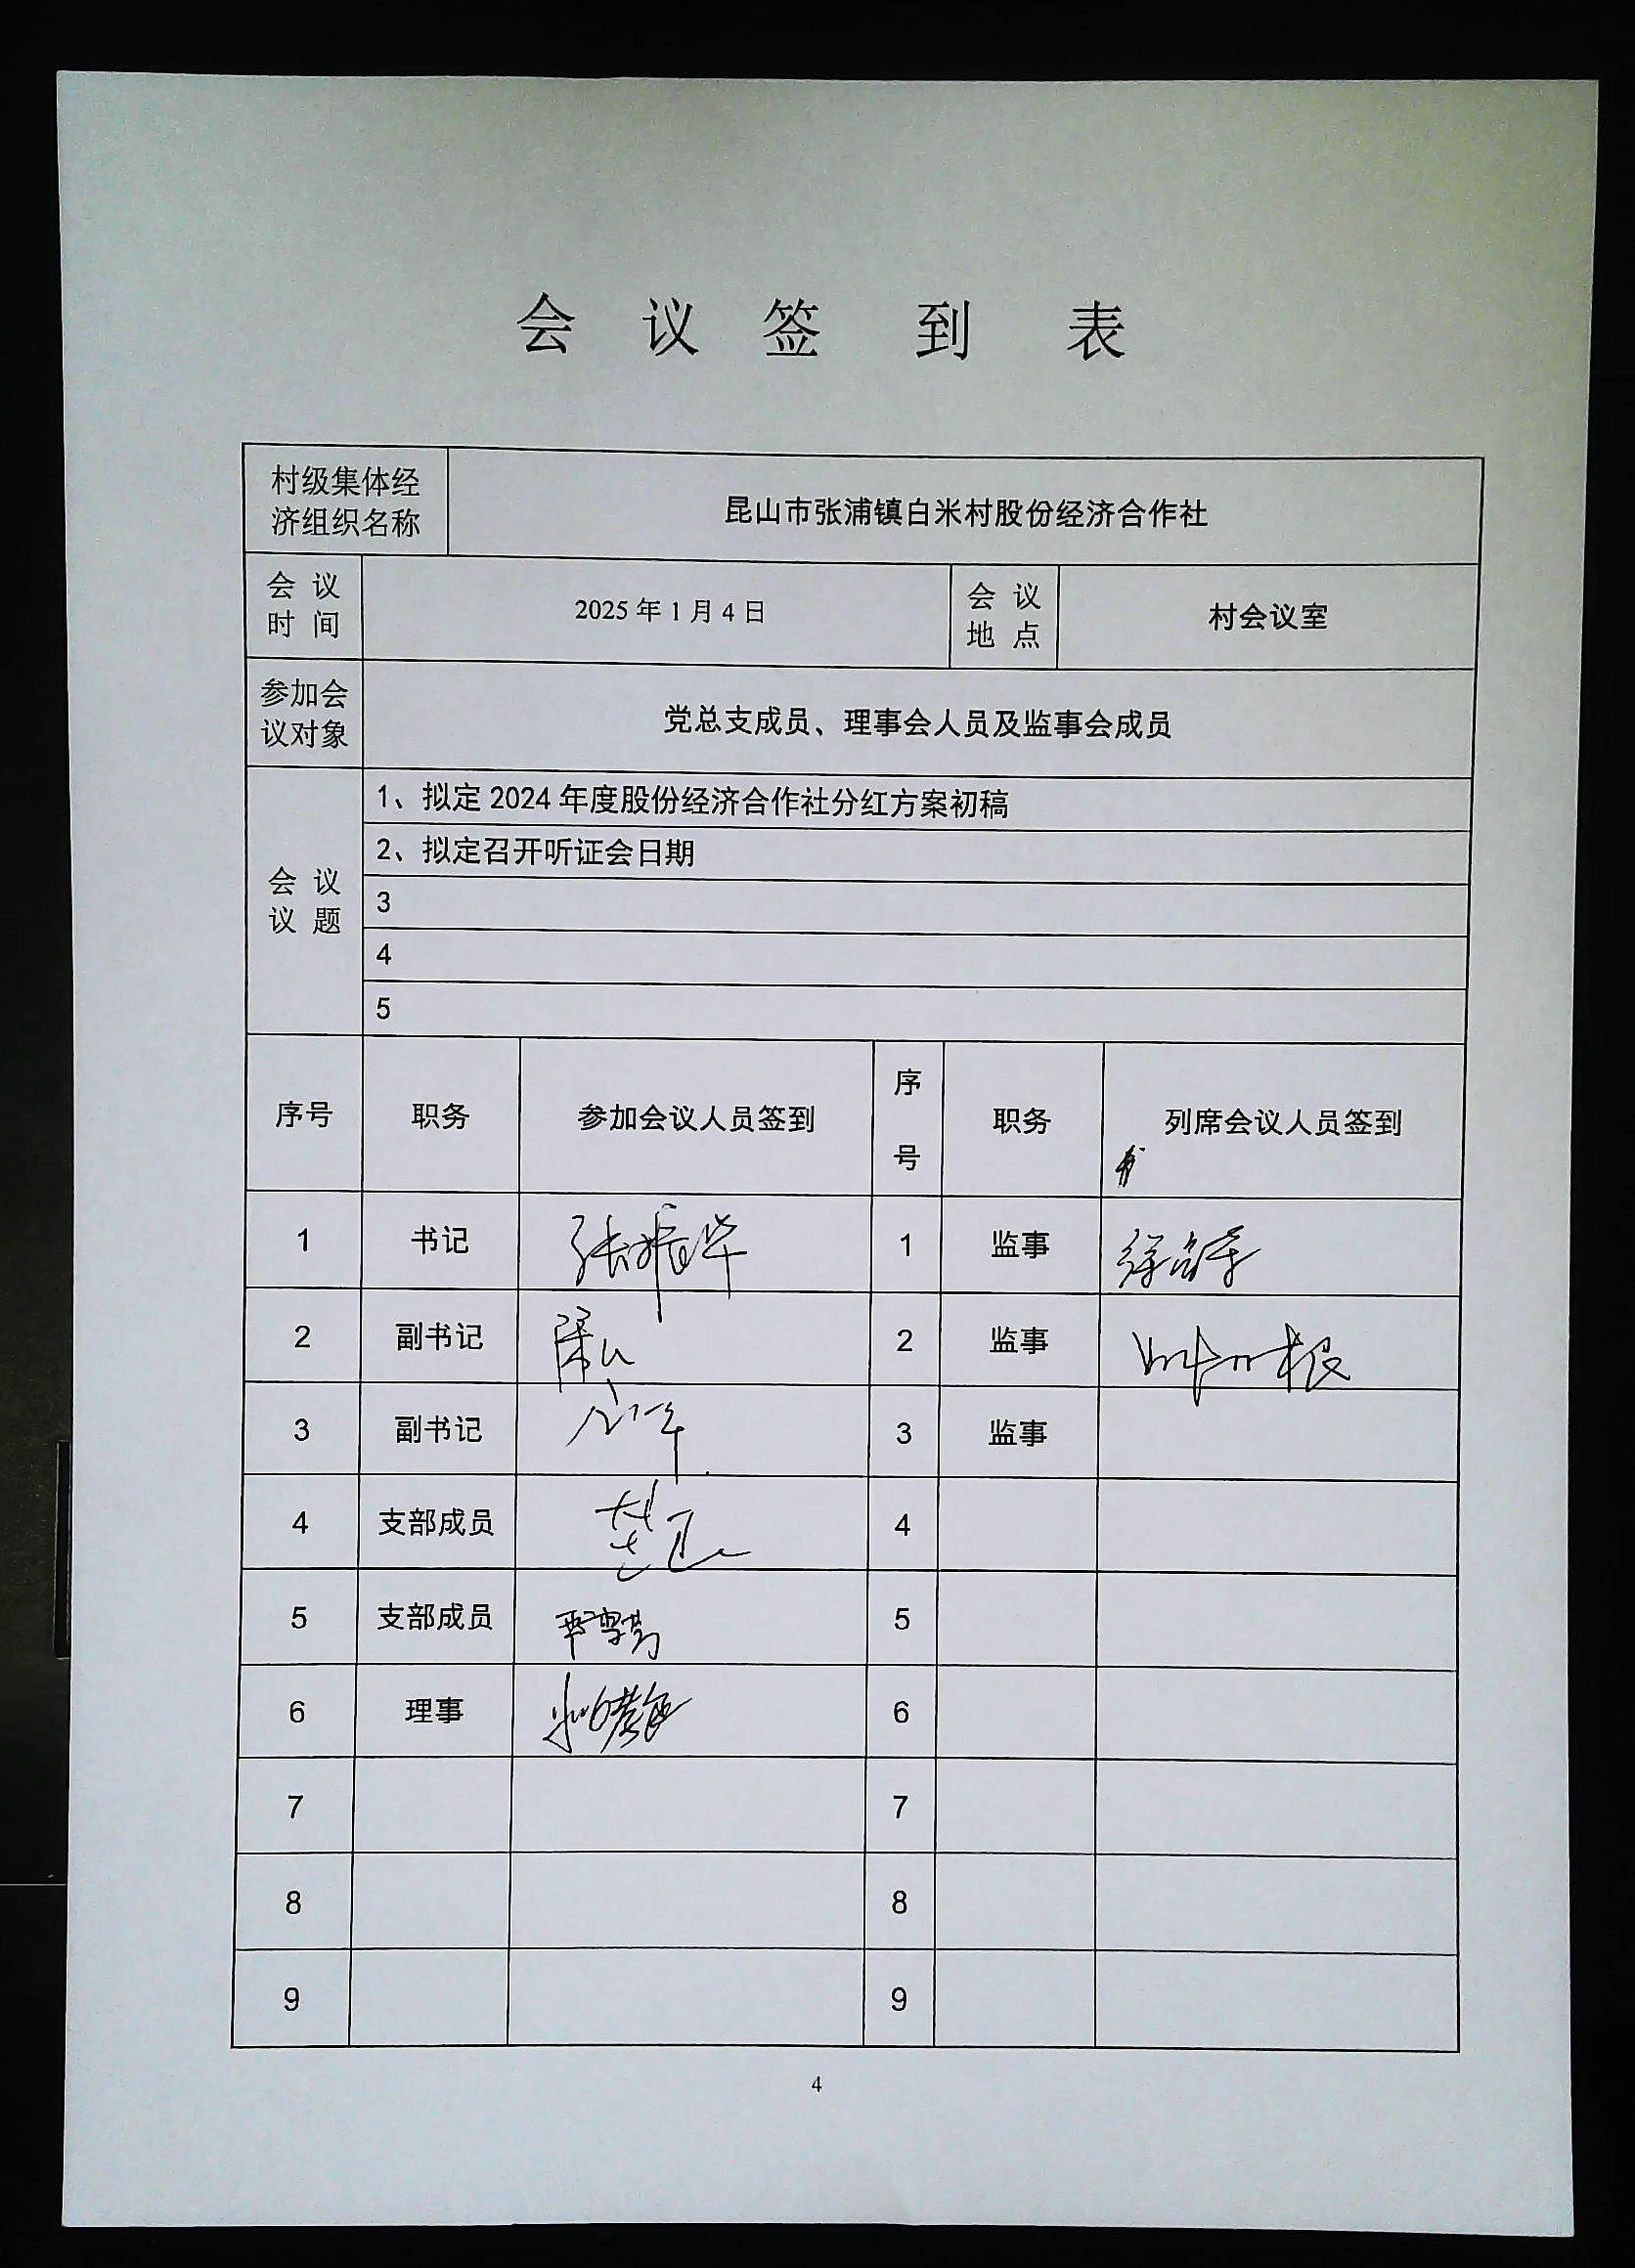 会 议 签 到 表
村级集体经
济组织名称
昆山市张浦镇白米村股份经济合作社
会 议
时 间
2025 年 1 月 4 日
会 议
地 点
村会议室
参加会
议对象
党总支成员、理事会人员及监事会成员
会 议
议 题
1、拟定 2024 年度股份经济合作社分红方案初稿
2、拟定召开听证会日期
3
4
5
序号 职务 参加会议人员签到 序号 职务 列席会议人员签到
1 书记 张振华 1 监事
2 副书记 2 监事
3 副书记 3 监事
4 支部成员 4
5 支部成员 5
6 理事 6
7 7
8 8
9 9
4